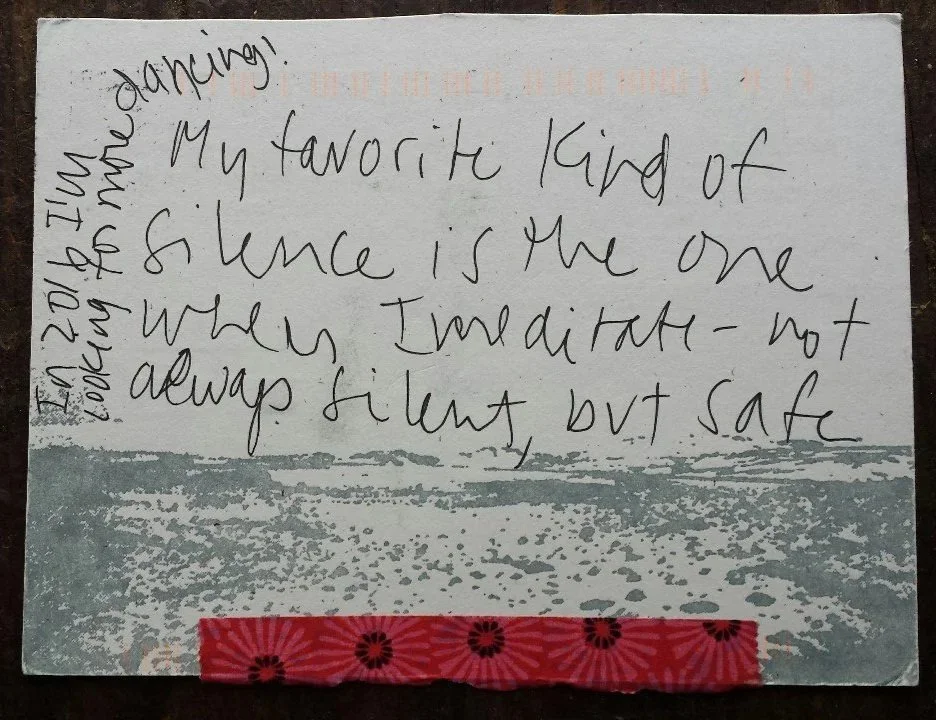 My favorite Kind of
silence is the one
when I meditate - not
always silent, but safe
In 2016 I'm
looking for more dancing!